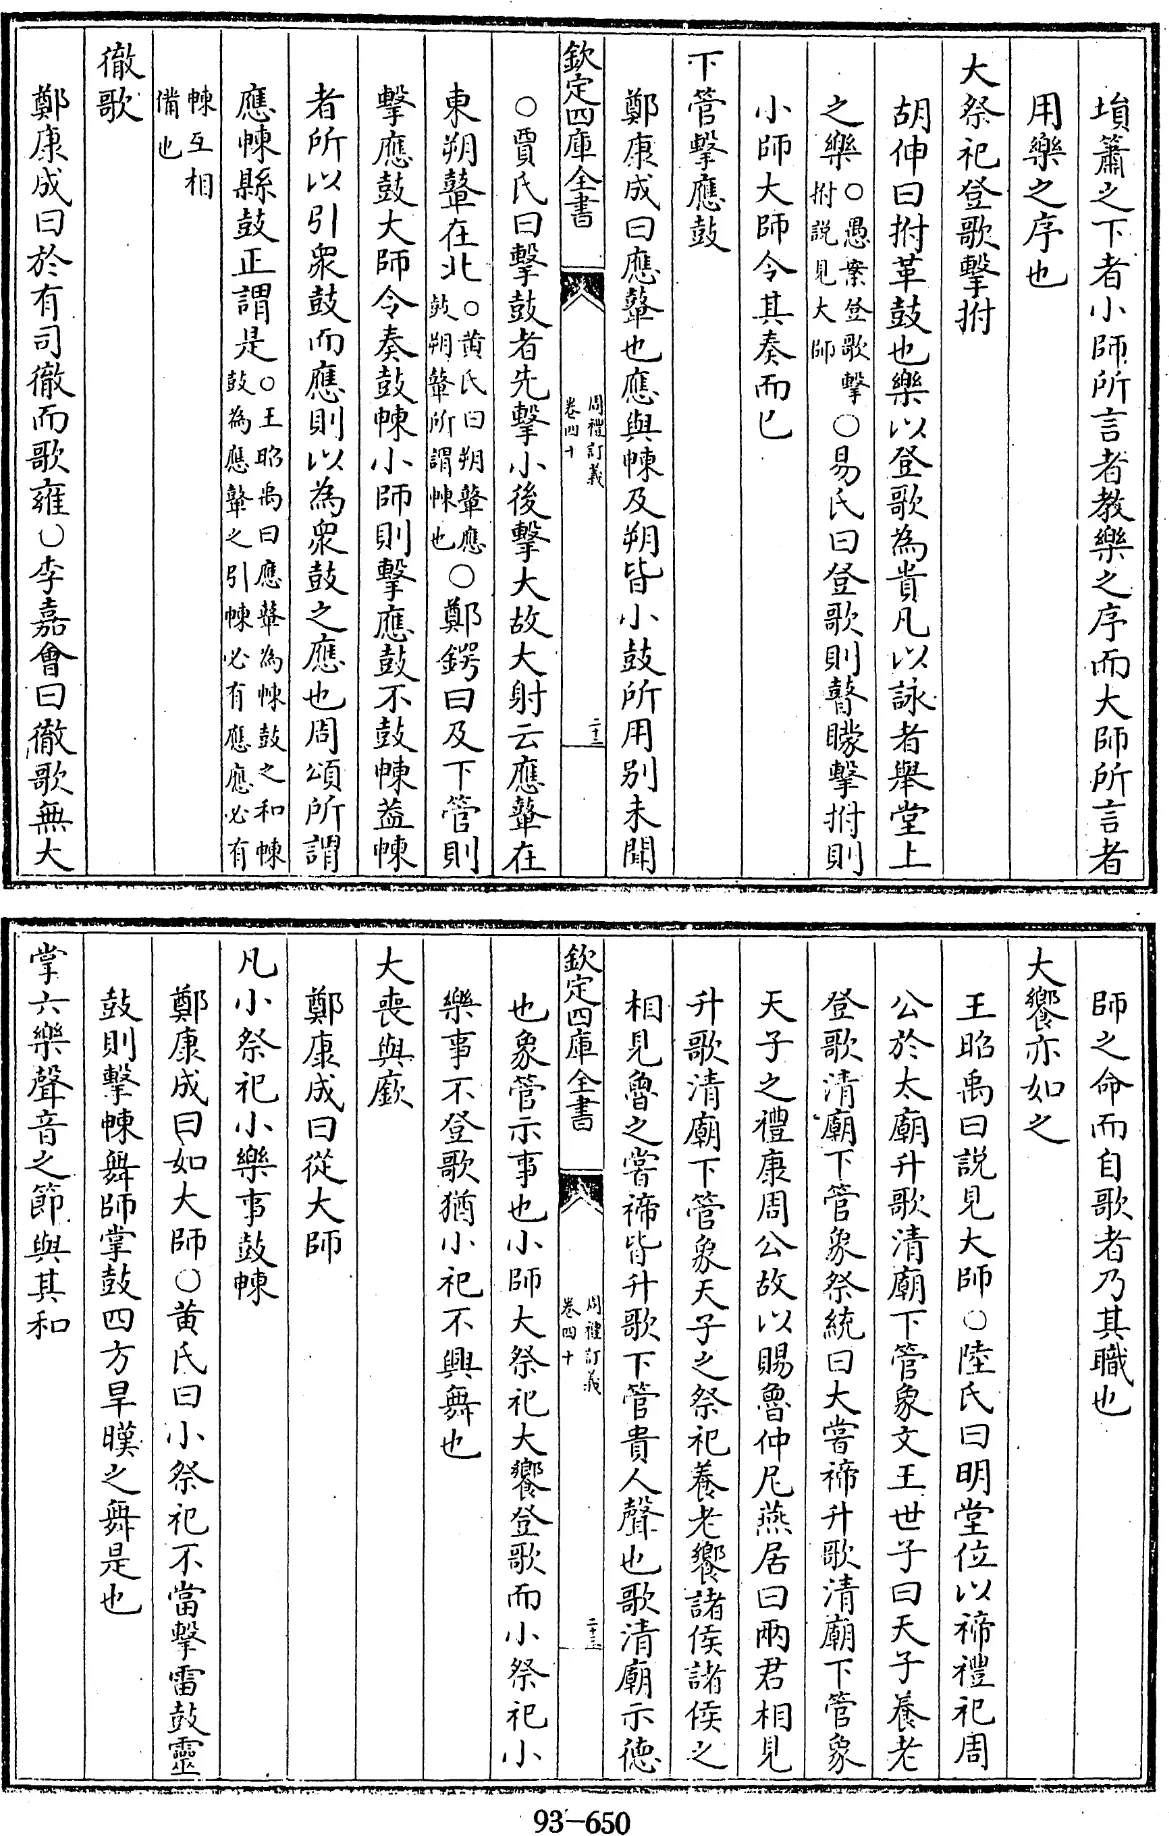 塤簫之下者小師所言者教樂之序而大師所言者
用樂之序也
大祭祀登歌擊拊
胡伸曰拊革鼓也樂以登歌為貴凡以詠者舉堂上
之樂○愚案登歌擊拊説見大師○易氏曰登歌則瞽矇擊拊則
小師大師令其奏而已
下管擊應鼓
鄭康成曰應鼙也應與朄及朔皆小鼓所用别未聞
欽定四庫全書
周禮訂義
卷四十
二十二
○賈氏曰擊鼓者先擊小後擊大故大射云應鼙在
東朔鼙在北○黄氏曰朔鼙應鼓朔鼙所謂朄也○鄭鍔曰及下管則
擊應鼓大師令奏鼓朄小師則擊應鼓不鼓朄葢朄
者所以引衆鼓而應則以為衆鼓之應也周頌所謂
應朄縣鼓正謂是○王昭禹曰應鼙為朄鼓之和朄鼓為應鼙之引朄必有應應必有
朄互相備也
徹歌
鄭康成曰於有司徹而歌雍○李嘉會曰徹歌無大
師之命而自歌者乃其職也
大饗亦如之
王昭禹曰説見大師○陸氏曰明堂位以禘禮祀周
公於太廟升歌清廟下管象文王世子曰天子養老
登歌清廟下管象祭統曰大嘗禘升歌清廟下管象
天子之禮康周公故以賜魯仲尼燕居曰兩君相見
升歌清廟下管象天子之祭祀養老饗諸侯諸侯之
相見魯之嘗禘皆升歌下管貴人聲也歌清廟示德
欽定四庫全書
周禮訂義
卷四十
二十三
也象管示事也小師大祭祀大饗登歌而小祭祀小
樂事不登歌猶小祀不興舞也
大喪與廞
鄭康成曰從大師
凡小祭祀小樂事鼓朄
鄭康成曰如大師○黄氏曰小祭祀不當擊雷鼓靈
鼓則擊朄舞師掌鼓四方旱暵之舞是也
掌六樂聲音之節與其和
93-650